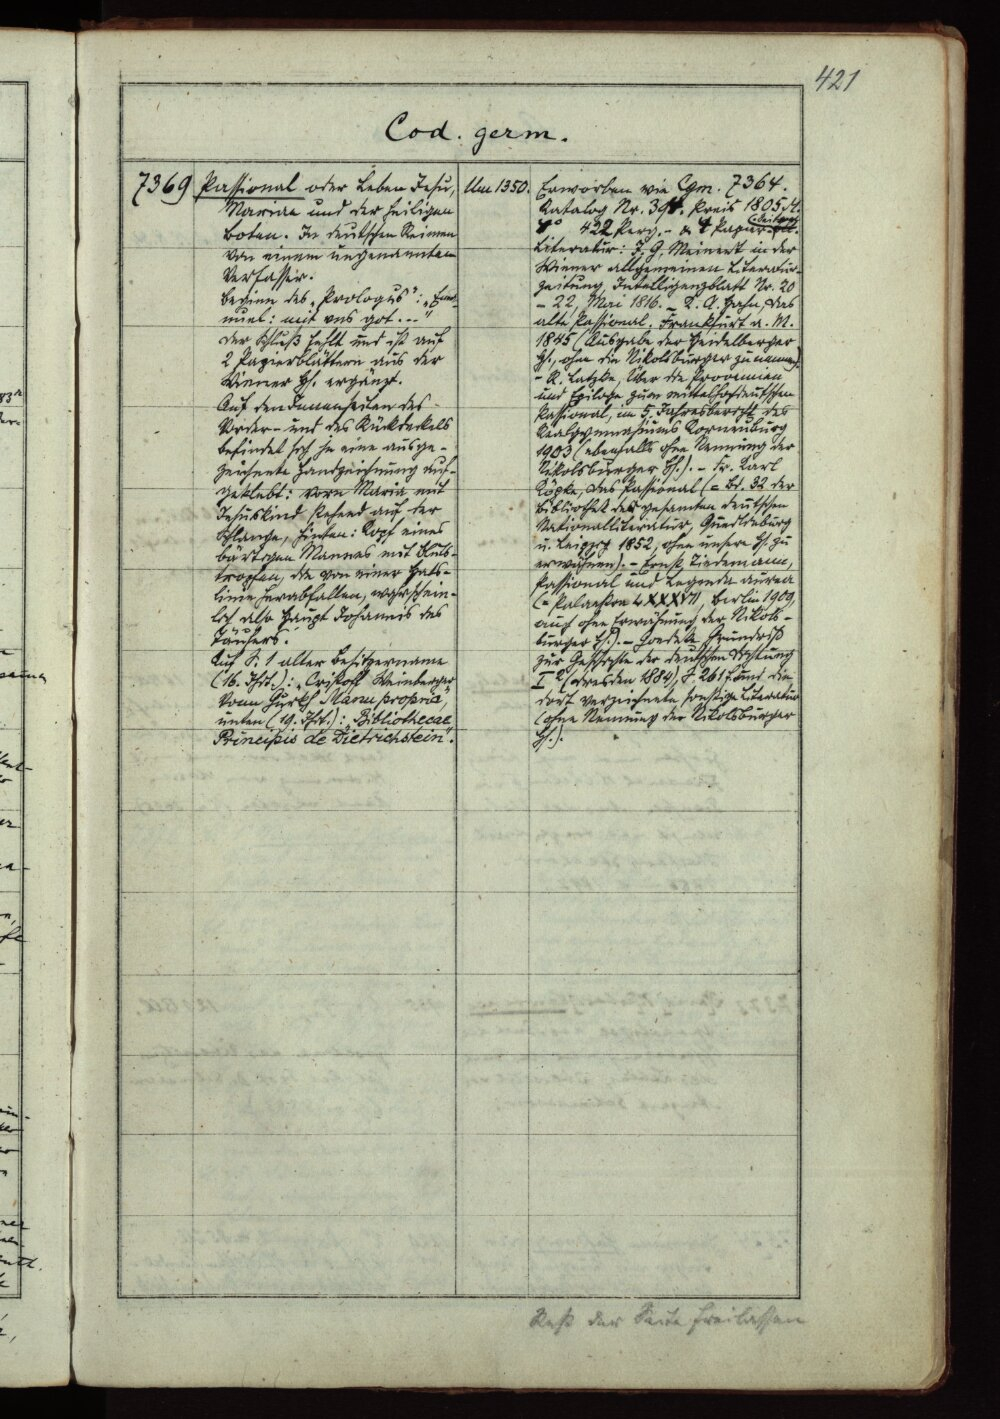 421
Cod. germ.
7369 Passional oder Leben Jesu,
Mariae und der heiligen
boten. In deutschen Reimen
von einem ungenannten
Verfasser.
Beginn des „Prologus“: „Ema-
nuel: mit vns got ...“
Der Schluß fehlt und ist auf
2 Papierblättern aus der
Wiener Hs. ergänzt.
Auf den Innenseiten des
Vorder- und des Rückdeckels
befindet sich je eine ausge-
zeichnete Handzeichnung auf-
geklebt: vorn Maria mit
Jesuskind stehend auf der
Schlange, hinten: Kopf eines
bärtigen Mannes mit Bluts-
tropfen, die von einer Hals-
linie herabfallen, wahrschein-
lich also Haupt Johannis des
Täufers.
Auf S. 1 alter Besitzername
(16. Jhdt.): „Cristoff Weinberger
vonn Gurkh Manu propria“,
unten (19. Jhdt.): „Bibliothecae
Principis de Dietrichstein“.
Um 1350.
Erworben wie Cgm. 7364.
Katalog Nr. 394. Preis 1805 M.
4° 422 Perg.- & 4 Papier-
Literatur: J. G. Meinert in der
Wiener allgemeinen Literatur-
zeitung, Intelligenzblatt Nr. 20
- 22, Mai 1816. - K. A. Hahn, das
alte Passional. Frankfurt a. M.
1845 (Ausgabe der Heidelberger
Hs., ohne die Nikolsburger zu nennen).
- R. Latzke, Über die Prooemien
und Epiloge zum mittelhochdeutschen
Passional, im 5. Jahresbericht des
Realgymnasiums Korneuburg
1903 (ebenfalls ohne Nennung der
Nikolsburger Hs.). - Fr. Karl
Köpke, das Passional (= Bd. 32 der
Bibliothek der gesamten deutschen
Nationalliteratur, Quedlinburg
u. Leipzig 1852, ohne unsere Hs. zu
erwähnen). - Ernst Tiedemann,
Passional und Legenda aurea
(= Palaestra LXXXVII, Berlin 1909,
auch ohne Erwähnung der Nikols-
burger Hs.). - Goedeke Grundriß
zur Geschichte der deutschen Dichtung
I² (Dresden 1884), S. 261 f. und die
dort verzeichnete sonstige Literatur
(ohne Nennung der Nikolsburger
Hs.).
Rest der Seite freilassen